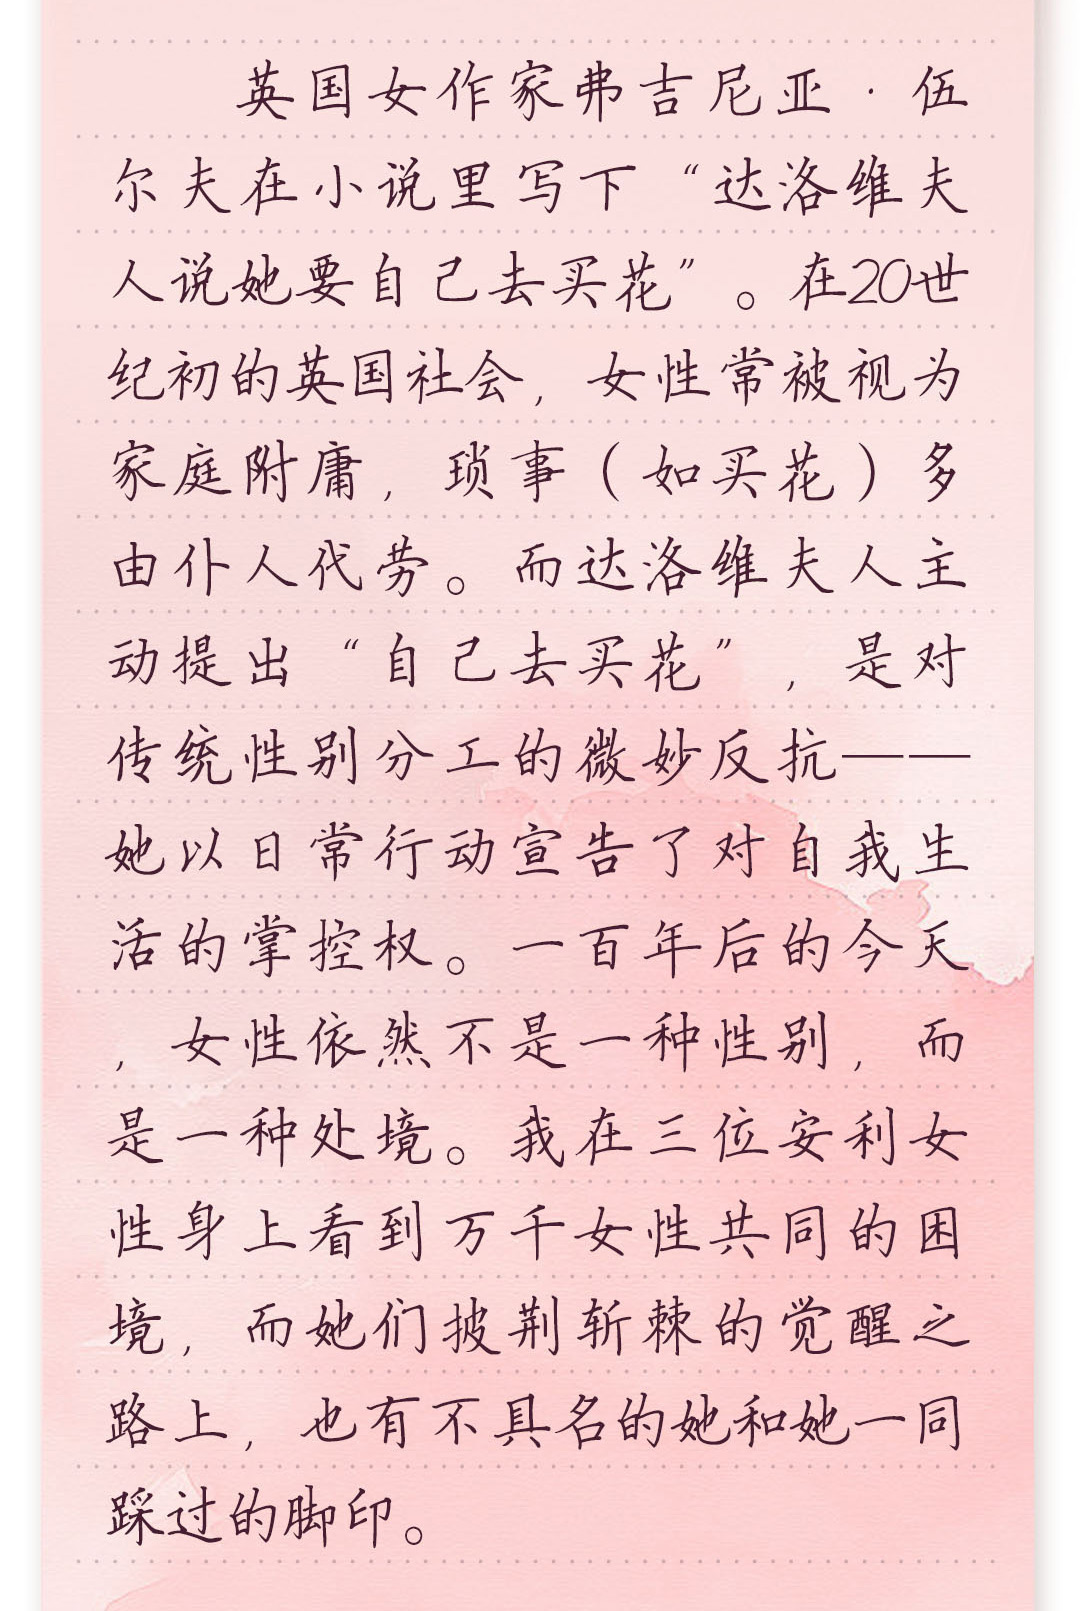 英国女作家弗吉尼亚·伍
尔夫在小说里写下“达洛维夫
人说她要自己去买花”。在20世
纪初的英国社会，女性常被视为
家庭附庸，琐事（如买花）多
由仆人代劳。而达洛维夫人主
动提出“自己去买花”，是对
传统性别分工的微妙反抗——
她以日常行动宣告了对自我生
活的掌控权。一百年后的今天
，女性依然不是一种性别，而
是一种处境。我在三位安利女
性身上看到万千女性共同的困
境，而她们披荆斩棘的觉醒之
路上，也有不具名的她和她一同
踩过的脚印。